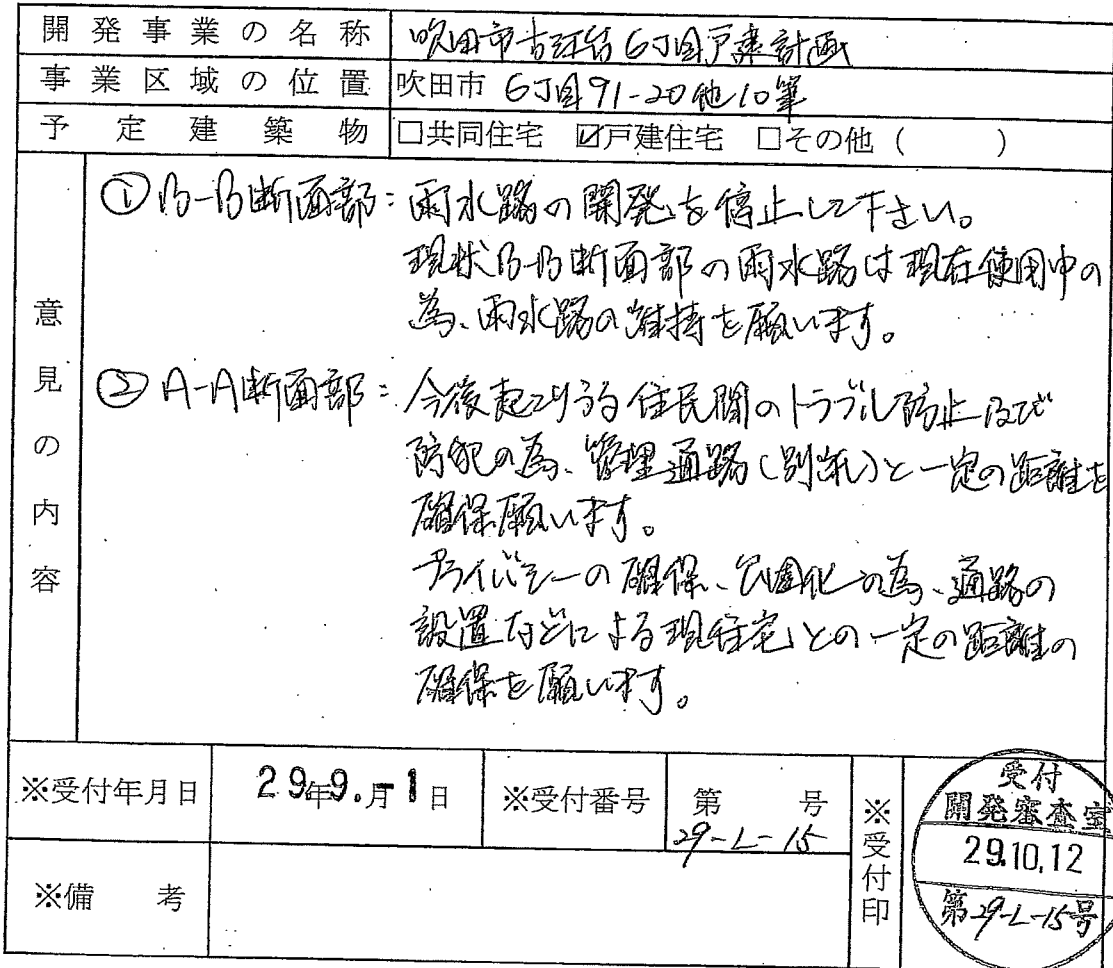 開発事業の名称 吹田市古江台6丁目戸建計画
事業区域の位置 吹田市 6丁目91-20他10筆
予定建築物 □共同住宅 ☑戸建住宅 □その他 ( )
意見の内容
① B-B断面部:雨水路の開発を停止して下さい。
現状B-B断面部の雨水路は現在使用中の
為、雨水路の維持を願います。
② A-A断面部:今後起こりうる住民間のトラブル防止及び
防犯の為、管理通路(別紙)と一定の距離を
確保願います。
プライバシーの確保、公園化の為、通路の
設置などによる現住宅との一定の距離の
確保を願います。
※受付年月日 29年9.月-1日 ※受付番号 第 号
29-L-15
※備考
※受付印
受付
開発審査室
29.10.12
第29-L-15号